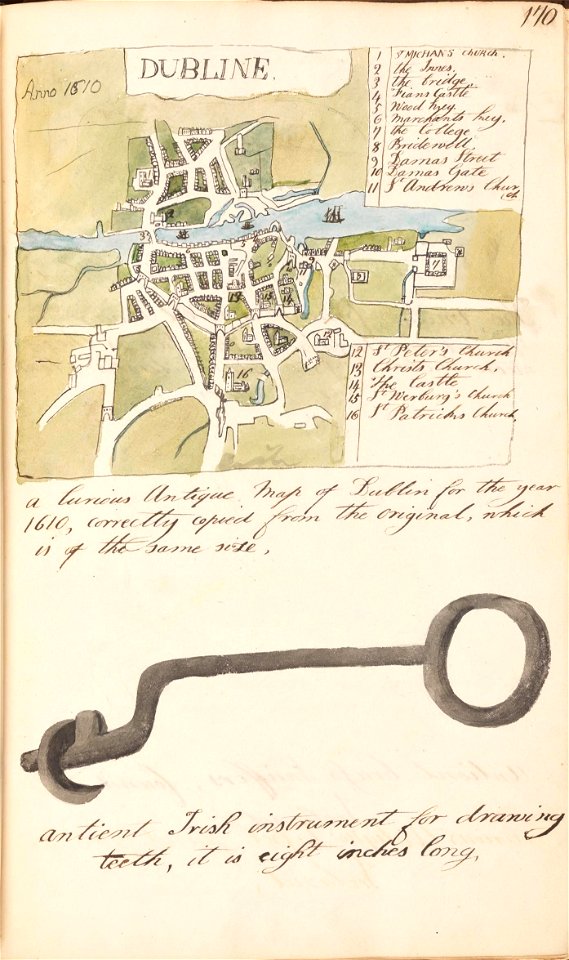 140
Anno 1610
DUBLINE.
1 St MICHANS Church.
2 the Innes,
3 the bridge
4 Fians Castle
5 Wood key.
6 Marchants key,
7 the College
8 Bridewell,
9 Damas Street
10 Damas Gate
11 St Andrews Church
12 St Peter's Church
13 Christs Church,
14 The Castle
15 St Werburg's Church
16 St Patricks Church,
a Curious Antique Map of Dublin for the year
1610, correctly copied from the original, which
is of the same size,
antient Irish instrument for drawing
teeth, it is eight inches long,